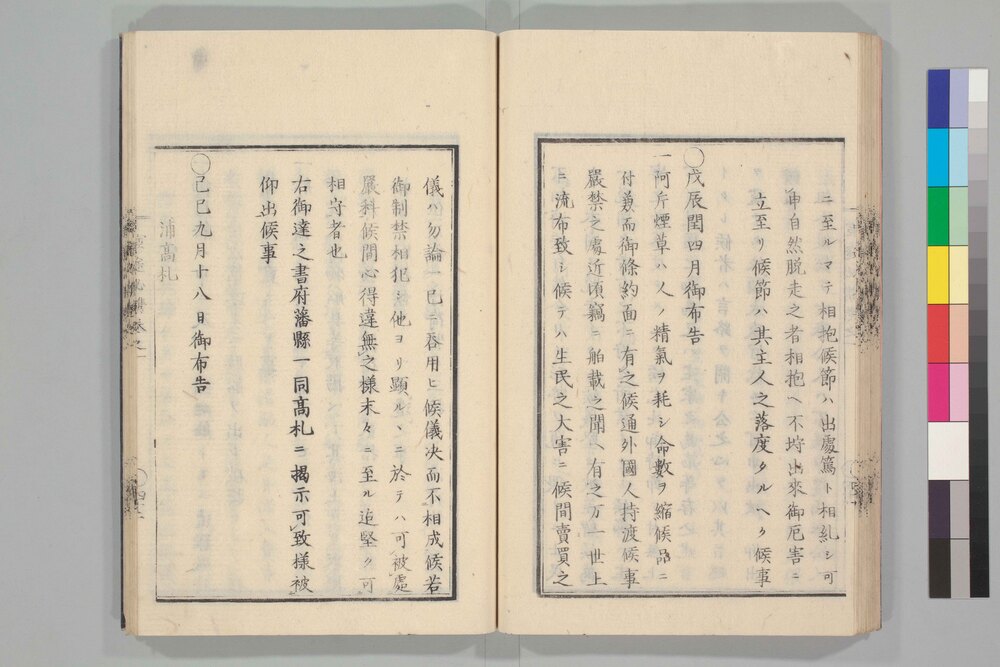 ニ至ルマテ相抱候節ハ出處篤ト相糺シ可
申自然脱走之者相抱ヘ不埒出來御厄害ニ
立至リ候節ハ其主人之落度タルヘク候事
〇戊辰閏四月御布告
一阿片煙草ハ人ノ精氣ヲ耗シ命數ヲ縮候品ニ
付兼而御條約面ニ有之候通外國人持渡候事
嚴禁之處近頃竊ニ舶載之聞ヘ有之万一世上
ニ流布致シ候テハ生民之大害ニ候間賣買之
儀ハ勿論一己ニ吞用ヒ候儀決而不相成候若
御制禁相犯シ他ヨリ顯ルヽニ於テハ可被處
嚴科候間心得違無之様末々ニ至ル迄堅ク可
相守者也
右御達之書府藩縣一同髙札ニ揭示可致様被
仰出候事
〇己巳九月十八日御布告
浦髙札